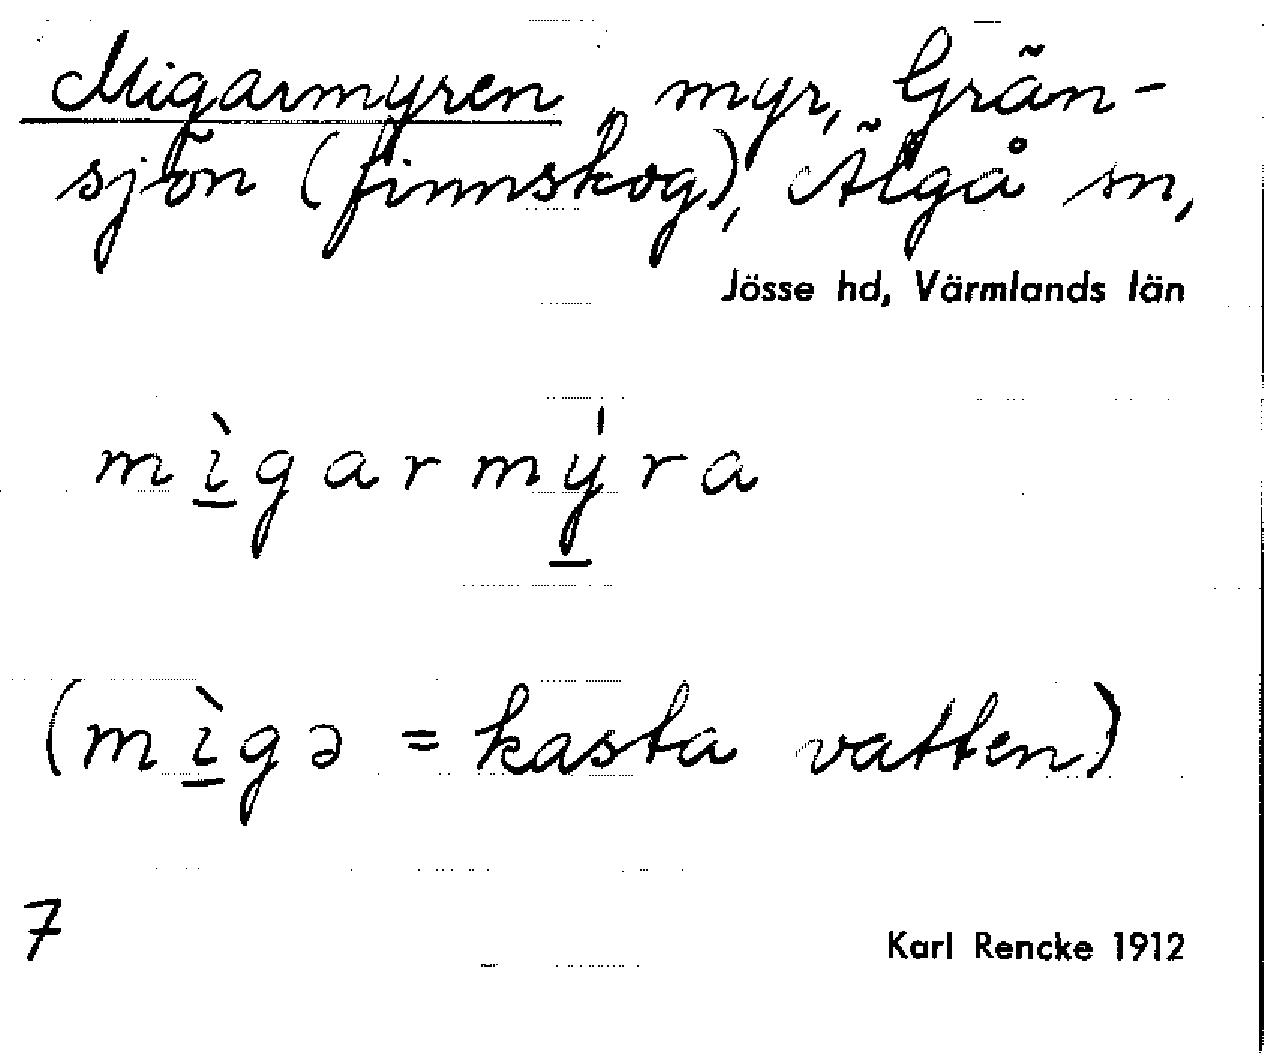 Migarmyren, myr, Grän-
sjön (finnskog), Älgå sn,
Jösse hd, Värmlands län
mì̱garmý̱ra
(mì̱gə = kasta vatten)
7
Karl Rencke 1912